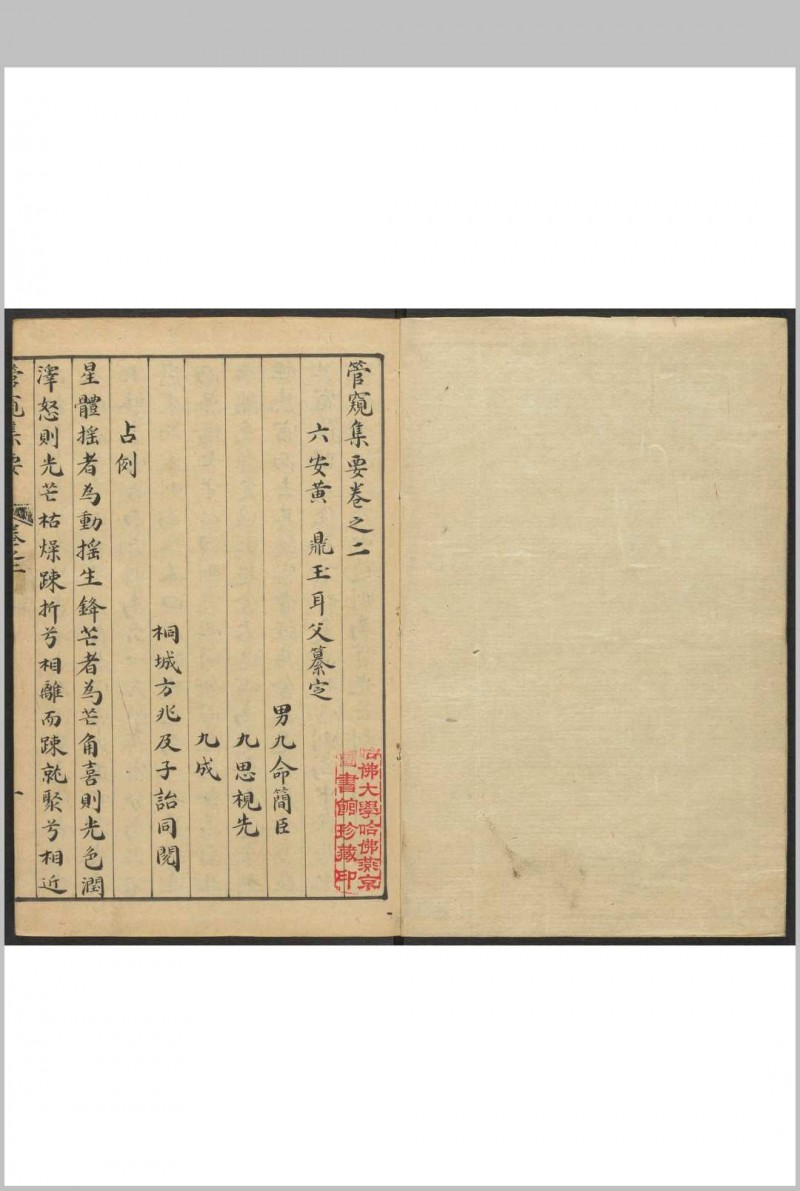 管窺集要卷之二
六安黃　鼎玉耳父纂定
男九命簡臣
九思視先
九成
桐城方兆及子詒同閱
占例
星體搖者為動搖生鋒芒者為芒角喜則光色潤
澤怒則光芒枯燥踈折兮相離而踈就聚兮相近
管窺集要　卷之二　一
哈佛大學哈佛燕京
圖書館珍藏印